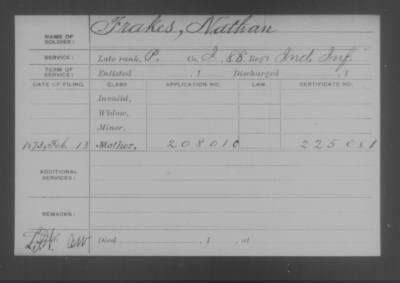 NAME OF SOLDIER: Frakes, Nathan
SERVICE: Late rank, P. Co. I, 88 Reg't Ind. Inf.
TERM OF SERVICE: Enlisted , 1 Discharged , 1
DATE OF FILING. CLASS. APPLICATION NO. LAW. CERTIFICATE NO.
Invalid,
Widow,
Minor,
1873, Feb. 13 Mother, 208010 225081
ADDITIONAL SERVICES:
REMARKS:
Died , 1 , at